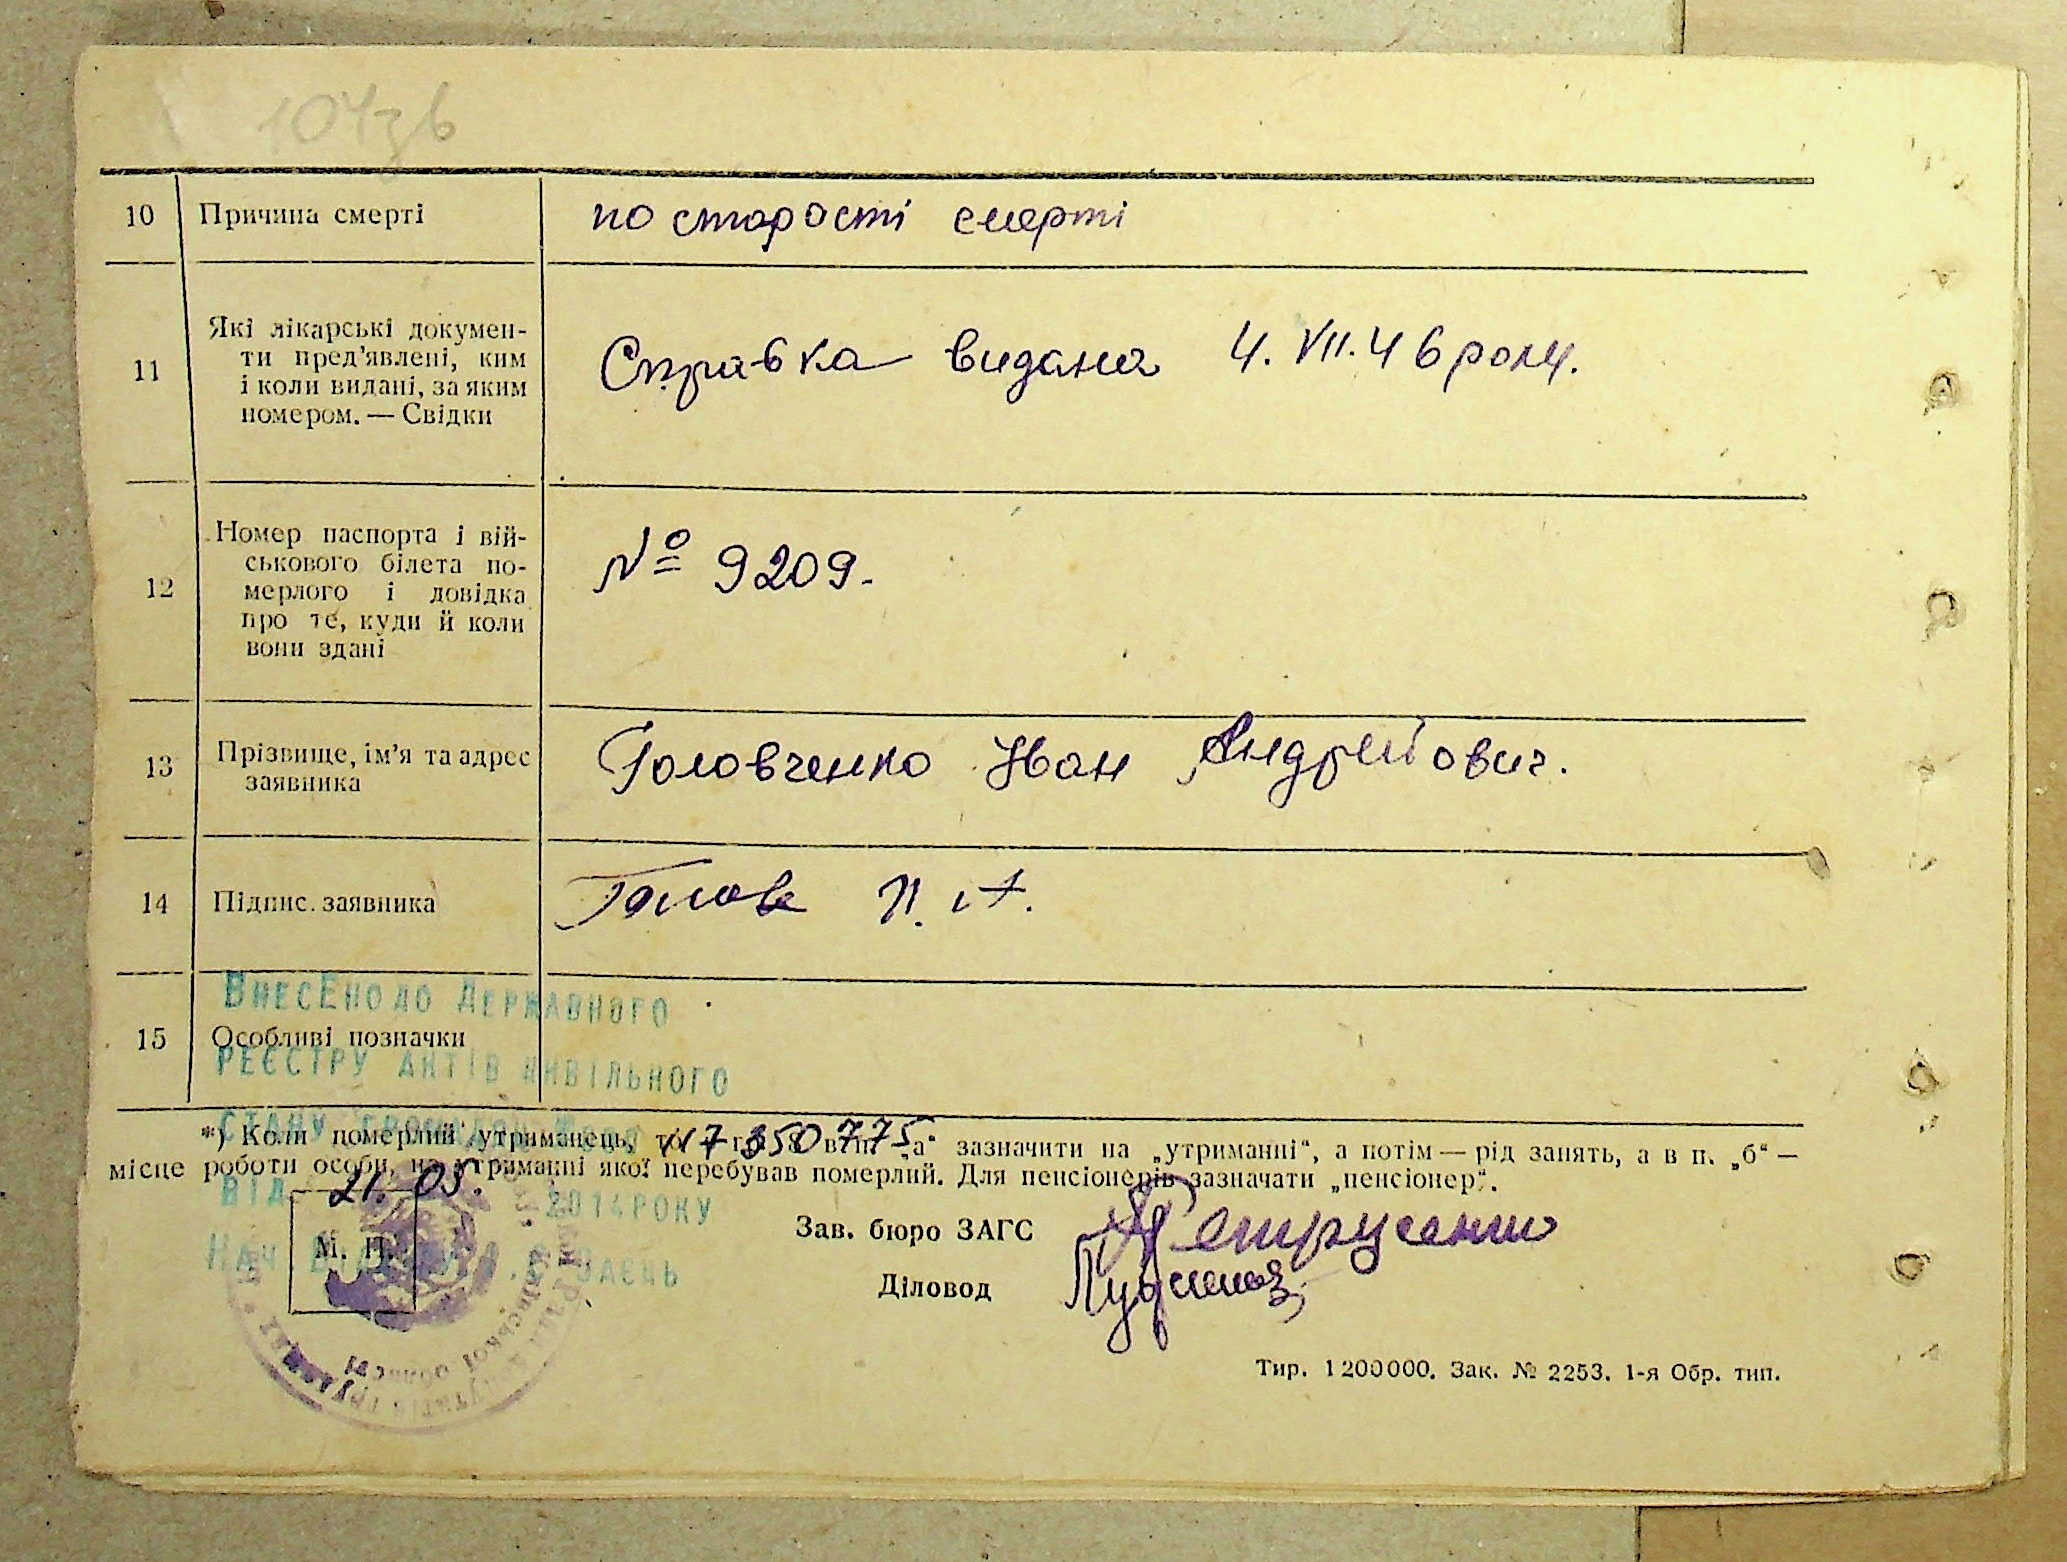 104зв
10 Причина смерті по старості смерті
11 Які лікарські докумен-
ти пред’явлені, ким
і коли видані, за яким
номером. — Свідки
Справка видана 4. VII. 46 року.
12 Номер паспорта і вій-
ськового білета по-
мерлого і довідка
про те, куди й коли
вони здані
№ 9209.
13 Прізвище, ім’я та адрес
заявника
Головченко Іван Андрейович.
14 Підпис заявника
15 Особливі позначки
ВНЕСЕНО ДО ДЕРЖАВНОГО
РЕЄСТРУ АКТІВ ЦИВІЛЬНОГО
СТАНУ ГРОМАДЯН 350775
*) Коли померлий утриманець, то в п. „а“ зазначити на „утриманні“, а потім — рід занять, а в п. „б“ —
місце роботи особи, на утриманні якої перебував померлий. Для пенсіонерів зазначати „пенсіонер“.
ВІД 21. 05. 2014 РОКУ
М. П.
Зав. бюро ЗАГС
Діловод
Тир. 1200000. Зак. № 2253. 1-я Обр. тип.